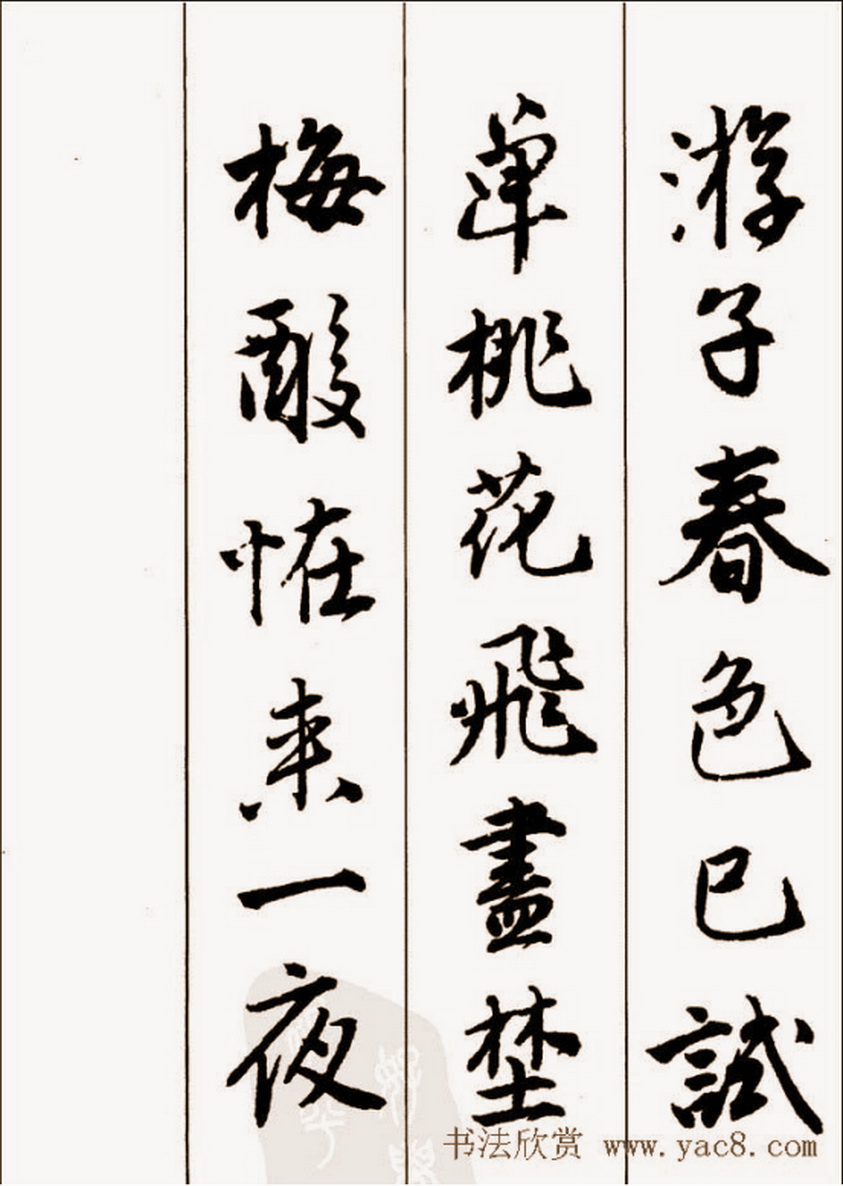 游子春色已試
單桃花飛盡埜
梅酸恠来一夜
书法欣赏 www.yac8.com